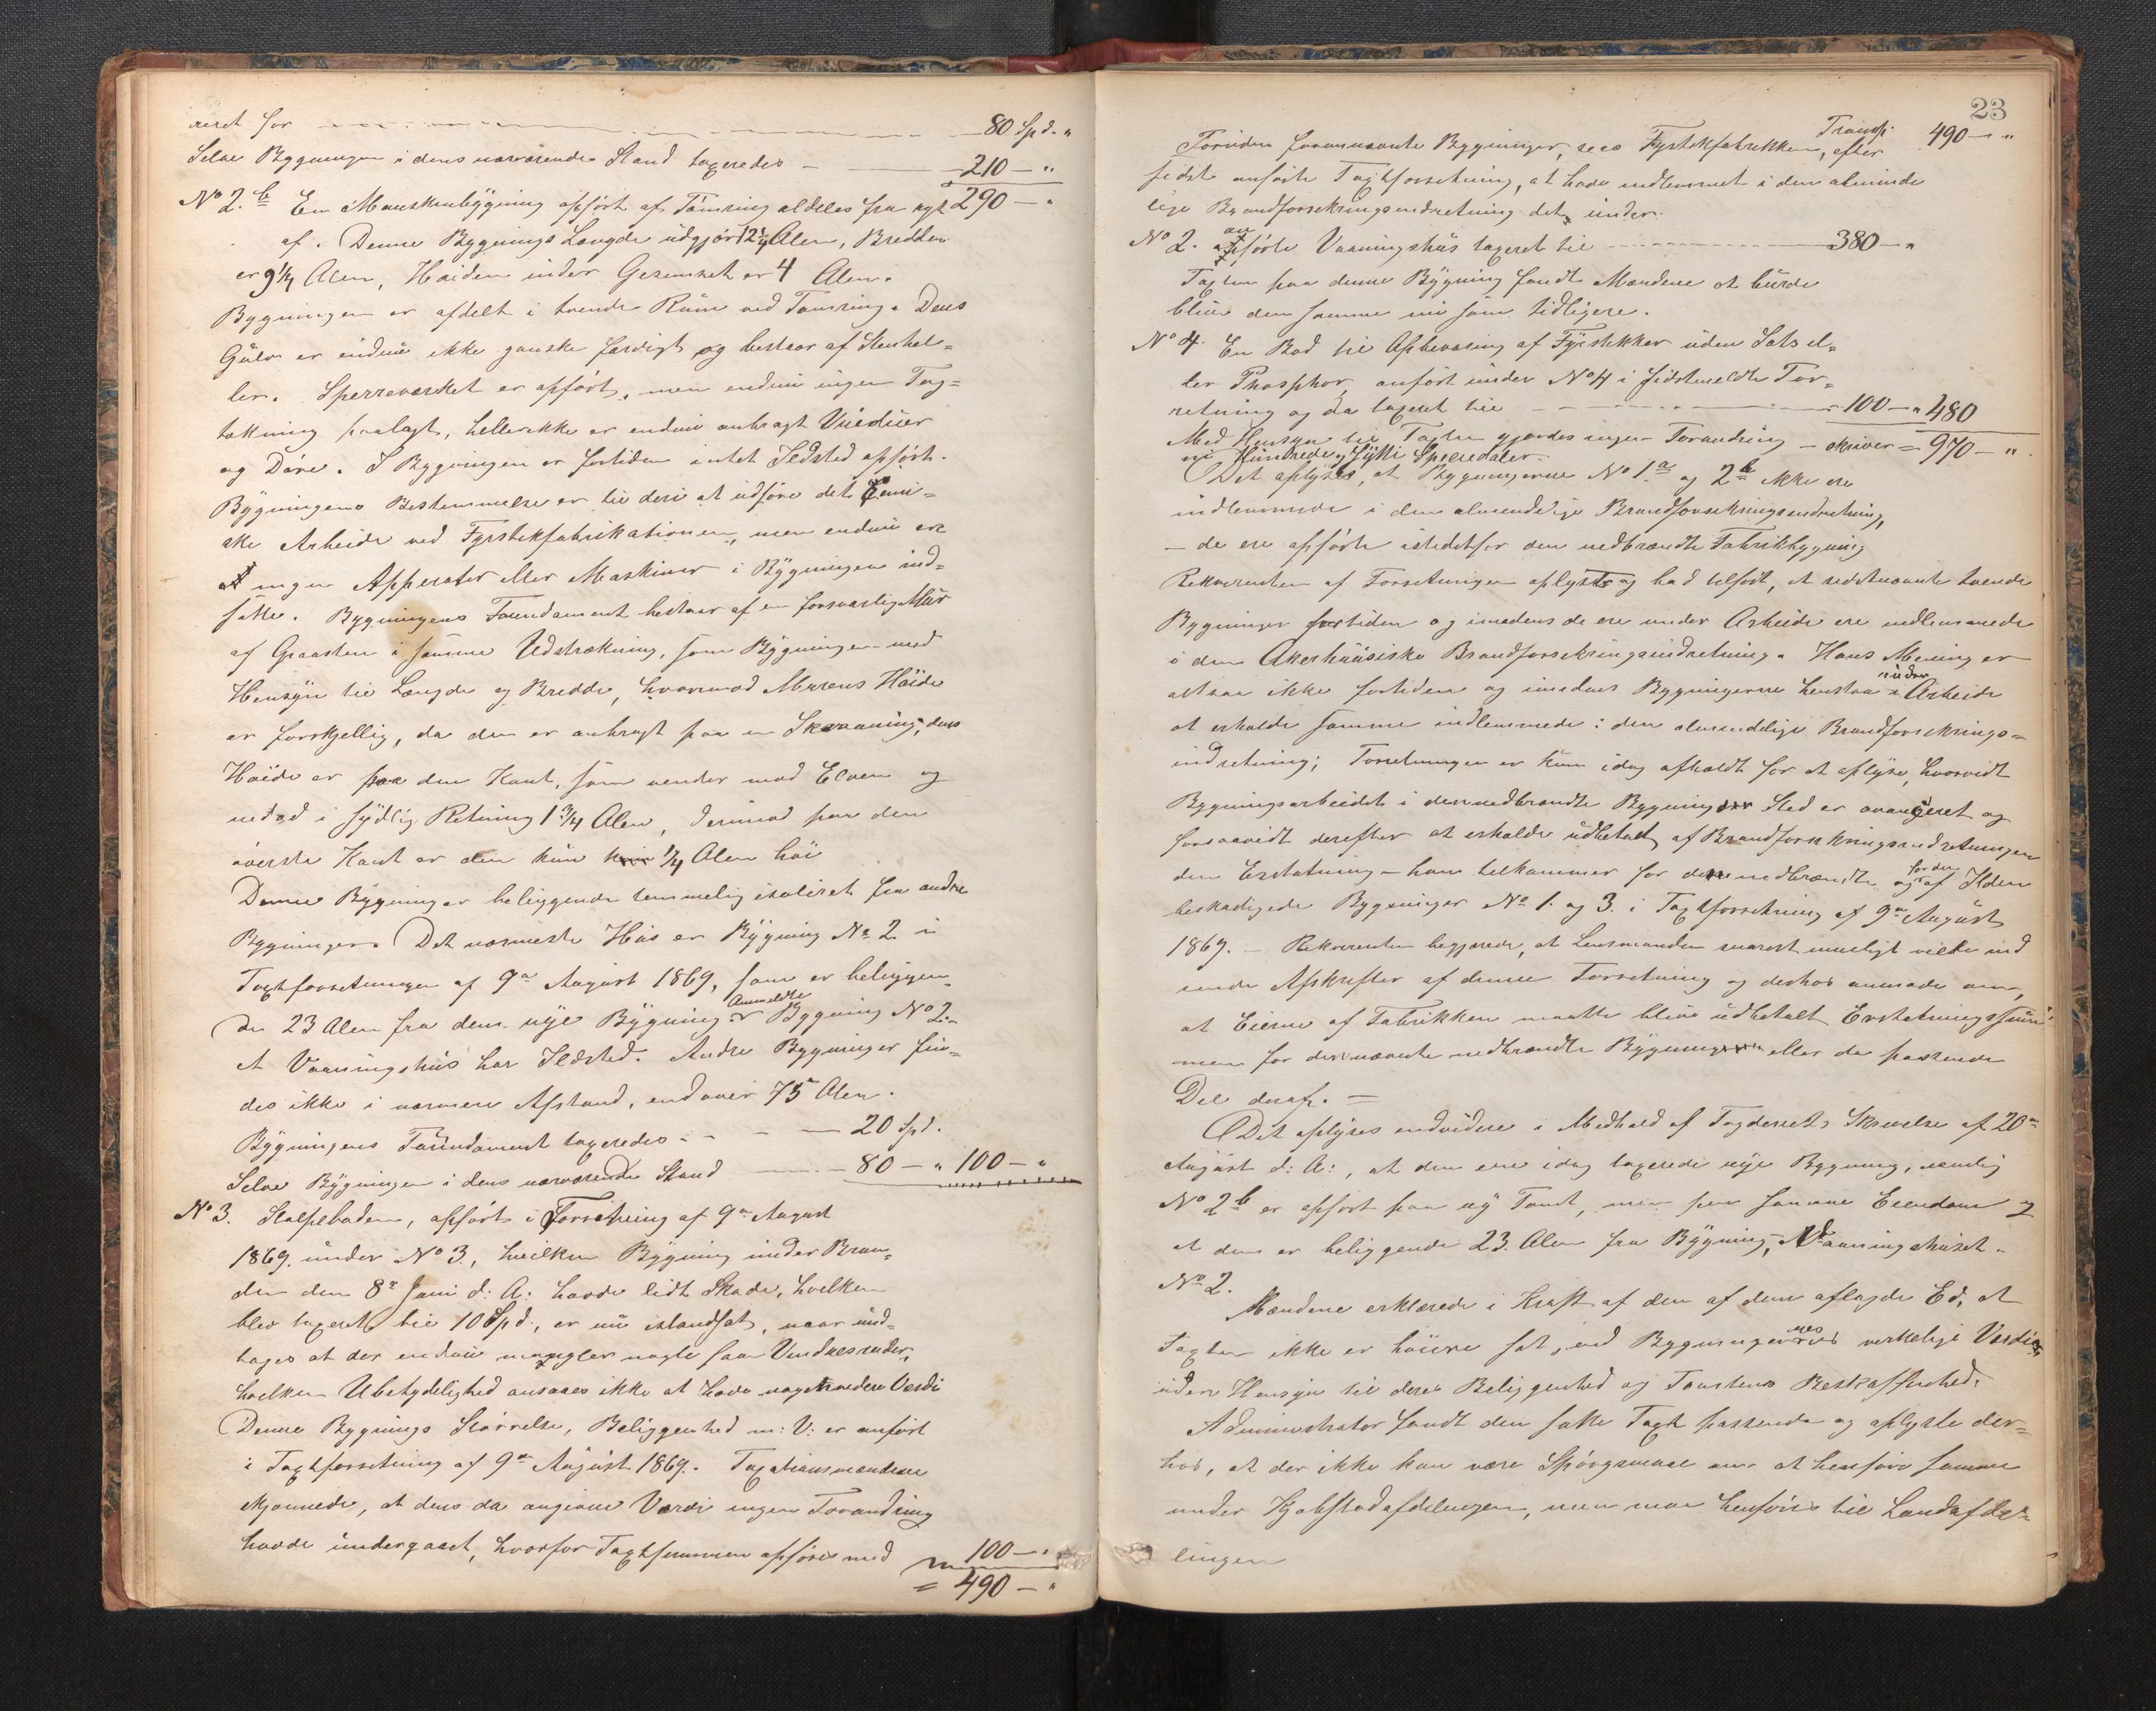 reret for — 80 Spd. "
Selve Bygningen i dens nærværende Stand taxeredes — 210 — "
290 — "
No 2. b En Maskinbygning opført af Tømring aldeles fra nyt
af. Denne Bygnings Længde udgjør 12 1/4 Alen, Bredden
er 9 1/4 Alen, Høiden under Gesimset er 4 Alen.
Bygningen er afdelt i tvende Rum ved Tømring. Dens
Gulv er endnu ikke ganske færdigt og bestaar af Stenhel=
ler. Sperreværket er opført, men endnu ingen Tag=
tækning paalagt, hellerikke er endnu anbragt Vinduer
og Døre. I Bygningen er fortiden intet Ildsted opført.
Bygningens Bestemmelse er til deri at udføre det kemi=
ske Arbeide ved Fyrstikfabrikationen, men endnu ere
ingen Apperater eller Maskiner i Bygningen ind=
satte. Bygningens Foundament bestaar af en forsvarlig Mur
af Graasten i samme Udstrækning, som Bygningen med
Hensyn til Længde og Bredde, hvorimod Murens Høide
er forskjellig, da den er anbragt paa en Skraaning; dens
Høide er paa den Kant, som vender mod Elven og
nedad i sydlig Retning 1 3/4 Alen, derimod paa den
øverste Kant er den kun 1/4 Alen høi
Denne Bygning er beliggende temmelig isoleret fra andre
Bygninger. Det nærmeste Hus er Bygning No 2 i
Taxtforretningen af 9de August 1869, som er beliggen=
de 23 Alen fra den nye Bygning. Anmeldte Bygning No 2.
et Vaaningshus har Ildsted. Andre Bygninger fin=
des ikke i nærmere Afstand, end over 75 Alen.
Bygningens Foundament taxeredes — 20 Spd.
Selve Bygningen i dens nærværende Stand — 80 — " 100 — "
No 3. Stolpeboden, opført i Forretning af 9de August
1869. under No 3., hvilken Bygning under Bran=
den den 8de Juni d: A: havde lidt Skade, hvilken
blev taxeret til 10 Spd., er nu istandsat, naar und=
tages at der endnu mangler nogle faa Vinduesruder,
hvilken Ubetydelighed ansaaes ikke at have nogen Værdi
Denne Bygnings Størrelse, Beliggenhed m: V: er anført
i Taxtforretning af 9de August 1869. Taxationsmændene
skjønnede, at dens da angivne Værdi ingen Forandring
havde undergaaet, hvorfor Taxtsummen opføres med 100 — "
= 490 — "
23
Transp. 490 — "
Foruden forannævnte Bygninger, ere Fyrstikfabrikken, efter
sidst anførte Taxtforretning, at have indlemmet i den alminde
lige Brandforsikringsindretning det under
No 2. anførte Vaaningshus taxeret til — 380 — "
Taxten paa denne Bygning fandt Mændene at burde
blive den samme nu som tidligere.
No 4. En Bod til Opbevaring af Fyrstikker uden Sats el=
ler Phosphor, anført under No 4 i sidstmeldte For=
retning og da taxeret til — 100 — " 480
Med Hensyn til Taxten gjordes ingen Forandring — skriver = 970 — "
ni Hundrede og sytti Speciedaler
Det oplyses, at Bygningerne No 1. a og 2 b ikke ere
indlemmede i den almindelige Brandforsikringsindretning,
— de ere opførte istedetfor den nedbrændte Fabrikbygning
Rekvirenten af Forretningen oplyste og bad tilført, at sidstnævnte tvende
Bygninger fortiden og imedens de ere under Arbeide ere indlemmede
i den Akershusiske Brandforsikringsindretning. Hans Mening er
altsaa ikke fortiden og imedens Bygningerne henstaa under Arbeide
at erholde samme indlemmede i den almindelige Brandforsikrings=
indretning; Forretningen er kun idag afholdt for at oplyse, hvorvidt
Bygningsarbeidet i den nedbrændte Bygnings Sted er avanceret og
forsaavidt derefter at erholde udbetalt af Brandforsikringsindretningen
den Erstatning — han tilkommer for den nedbrændte og for den af Ilden
beskadigede Bygninger No 1. og 3. i Taxtforretning af 9de August
1869. — Rekvirenten begjærede, at Lensmanden snarest muligt vilde ind
sende Afskrifter af denne Forretning og derhos anmode om,
at Eierne af Fabrikken maatte blive udbetalt Erstatningssum=
men for den nævnte nedbrændte Bygning eller da passende
Del deraf. —
Det oplyses endvidere i Medhold af Fogderiets Skrivelse af 20de
August d: A:, at den ene idag taxerede nye Bygning, nemlig
No 2 b er opført paa ny Tomt, men paa samme Eiendom og
at den er beliggende 23. Alen fra Bygning, Vaaningshuset.
No 2.
Mændene erklærede i Kraft af den af dem aflagde Ed, at
Taxten ikke er høiere sat, end Bygningernes virkelige Værdi
uden Hensyn til deres Beliggenhed og Tomtens Beskaffenhed.
Administrator fandt den satte Taxt passende og oplyste der=
hos, at der ikke kan være Spørgsmaal om at henføre samme
under Kjøbstadafdelingen, men maa henføres til Landafde=
lingen